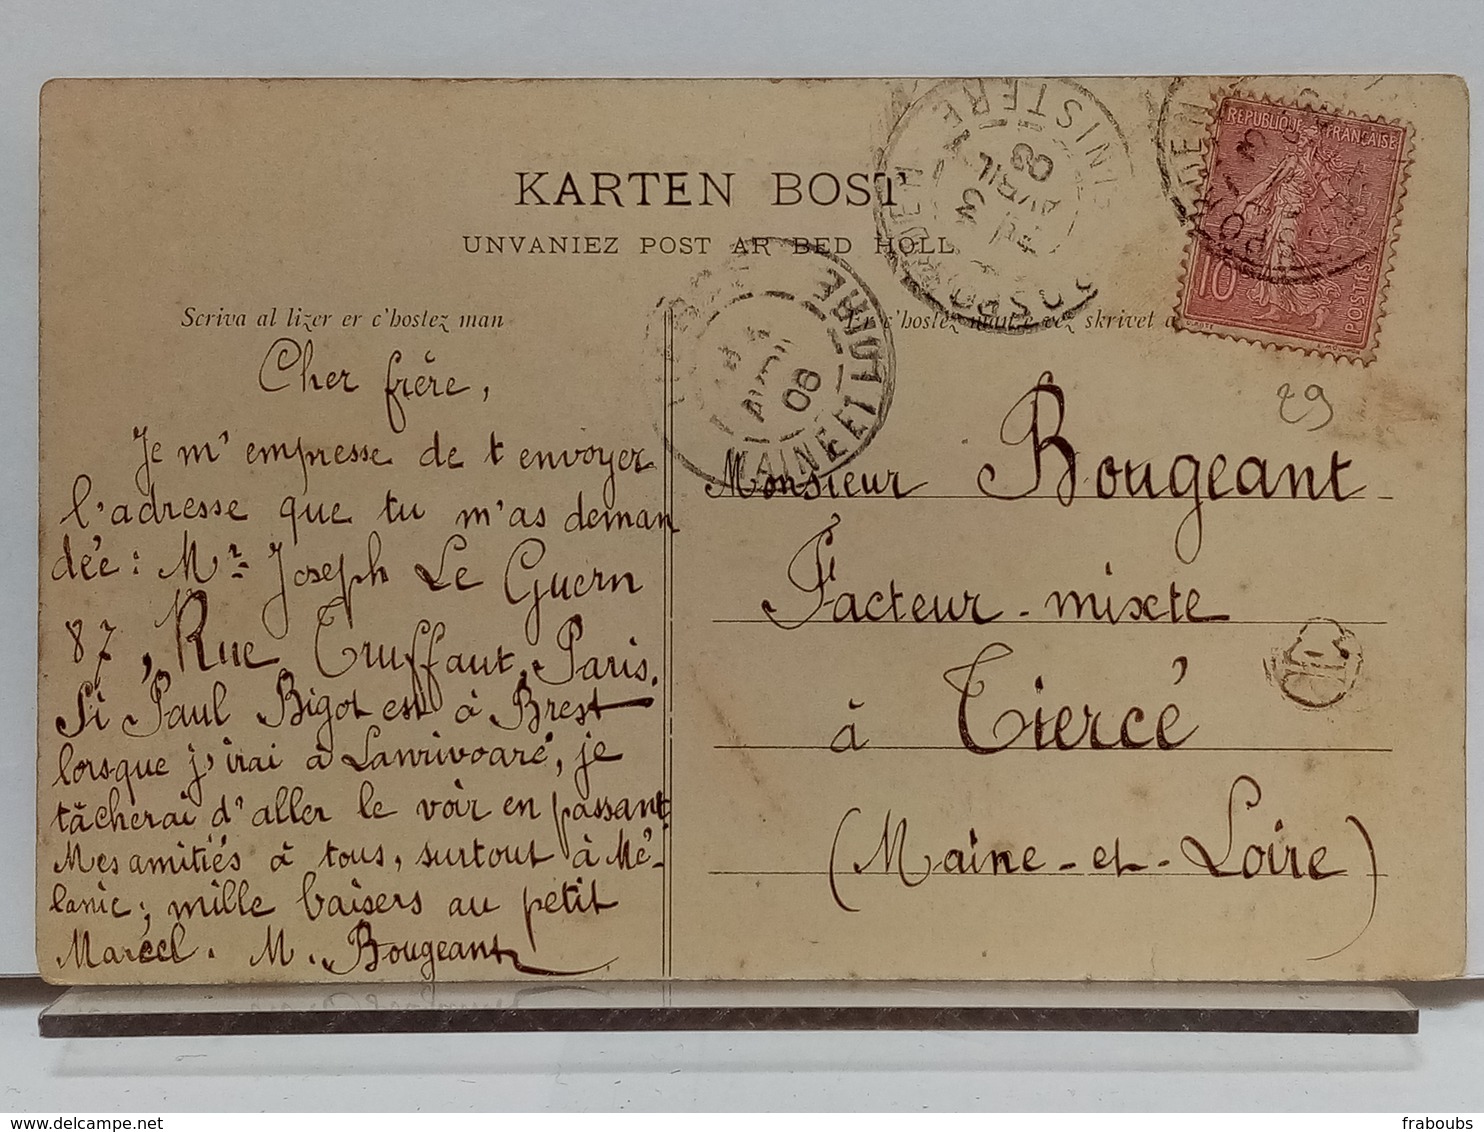 KARTEN BOST
UNVANIEZ POST AR BED HOLL
Scriva al lizer er c'hostez man
Er c'hostez man e vez skrivet a
Cher frère,
Je m'empresse de t envoyer
l'adresse que tu m'as deman
dée : Mr Joseph Le Guern
87, Rue Truffaut, Paris.
Si Paul Bigot est à Brest
lorsque j'irai à Lanrivoaré, je
tâcherai d'aller le voir en passant.
Mes amitiés à tous, surtout à Mé-
lanie; mille baisers au petit
Marcel. M. Bougeant
Monsieur Bougeant
Facteur-mixte
à Tiercé
(Maine-et-Loire)
29
REPUBLIQUE FRANÇAISE
10
POSTES
FINISTERE
3
AVRIL
08
MAINE ET LOIRE
08
fraboubs